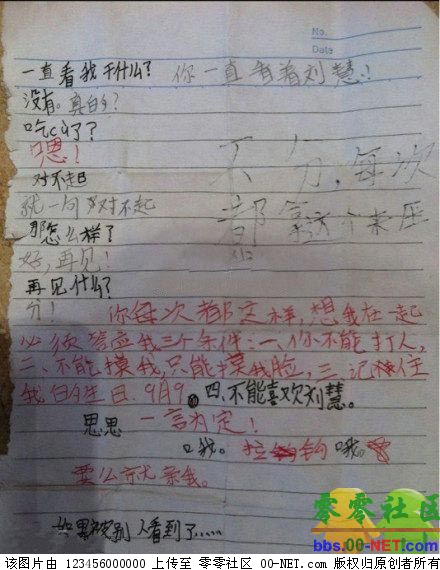 No.
Date
一直看我干什么? 你一直看着刘慧!
没有。真的?
吃c了?
嗯!
对不起
就一句对不起
那怎么样了?
好,再见!
再见什么?
分!
不分,每次
都拿这个来压
你每次都这样,想我在一起
必须答应我三个条件:一、你不能打人,
二、不能摸我,只能摸我脸,三、记住
我的生日.9月9 四.不能喜欢刘慧。
思思 一言为定!
口我。拉钩 哦。
要么就亲我。
如果被别人看到了……
零零社区
bbs.00-NET.com
该图片由 123456000000 上传至 零零社区 00-NET.com 版权归原创者所有